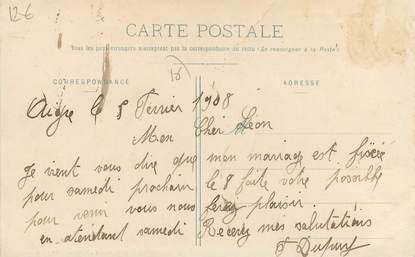 12-6
CARTE POSTALE
Tous les pays étrangers n'acceptent pas la correspondance au recto (Se renseigner à la Poste)
CORRESPONDANCE
ADRESSE
Aigre le 5 Fevrier 1908
Mon Cher Léon
Je vient vous dire que mon mariage est fixéé
pour samedi prochain le 8 faite votre possible
pour venir vous nous ferez plaisir.
en atendant samedi Recevez mes salutations
Dupuy